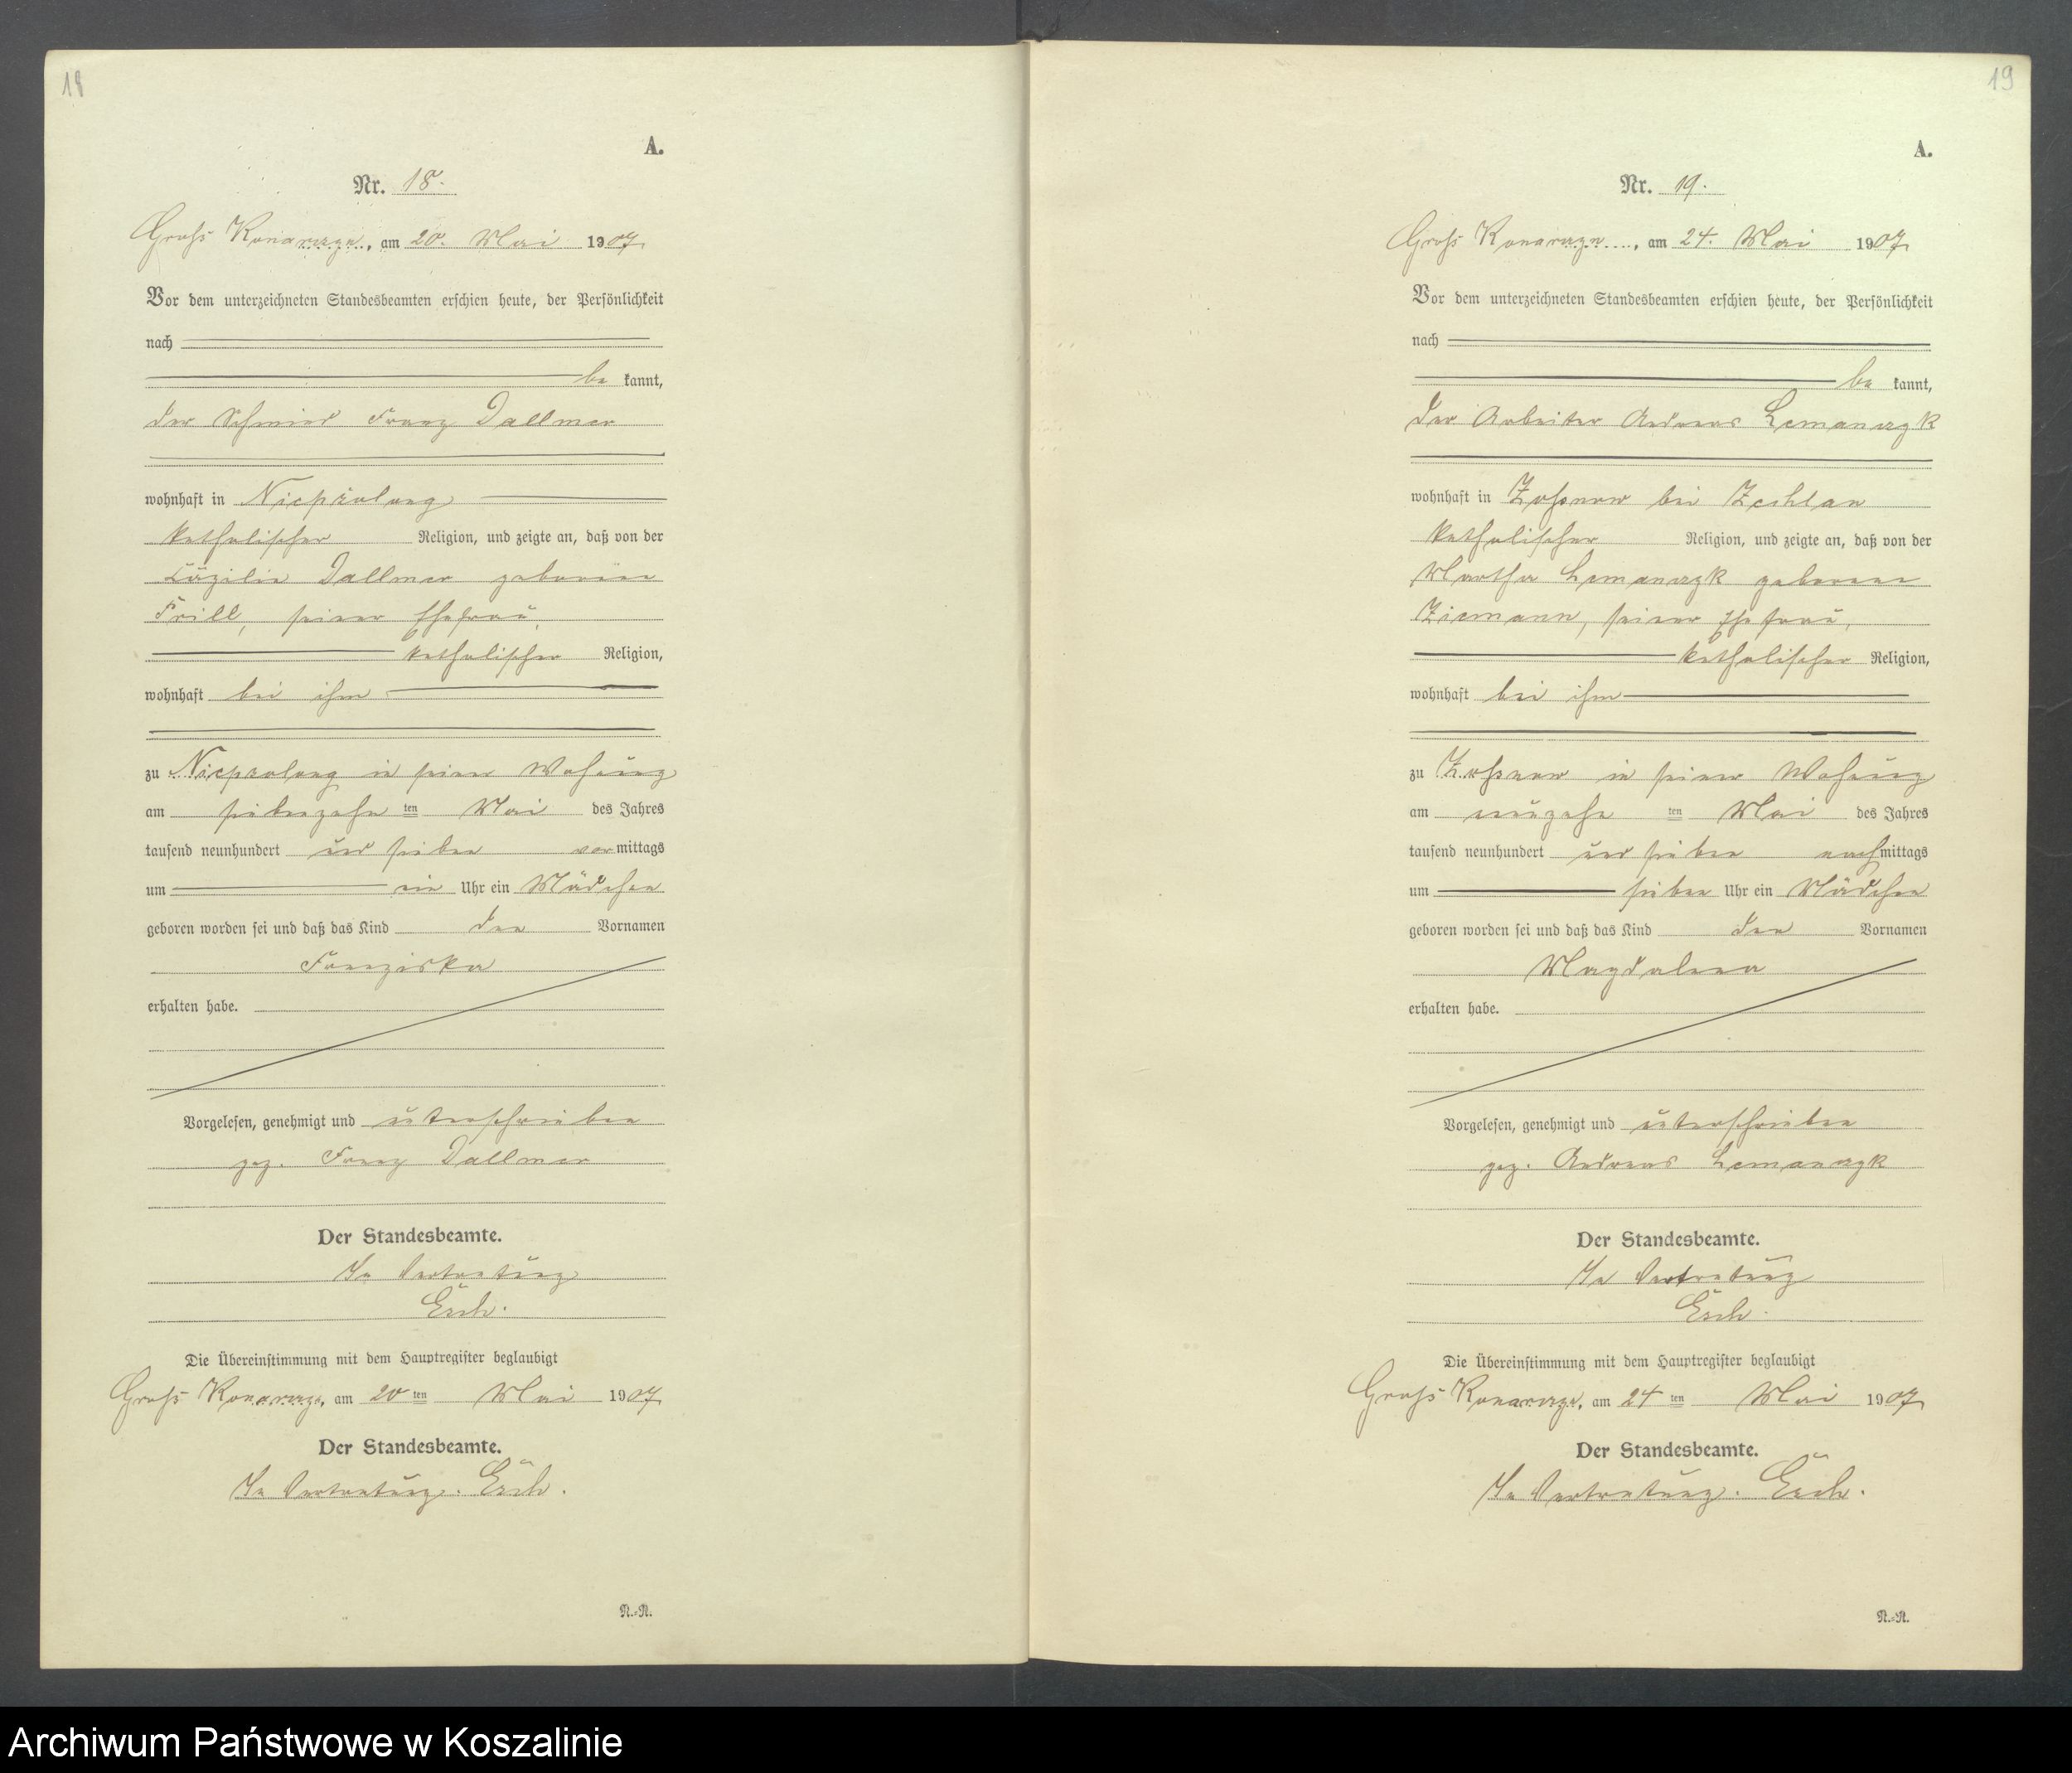 18
A.
Nr. 18.
Gross Konarczyn, am 20. Mai 1907.
Vor dem unterzeichneten Standesbeamten erschien heute, der Persönlichkeit
nach
be kannt,
der Schmied Franz Dallmer
wohnhaft in Niepzolong
katholischer Religion, und zeigte an, daß von der
Cäzilie Dallmer geborene
Frill, seiner Ehefrau,
katholischer Religion,
wohnhaft bei ihm
zu Niepzolong in seiner Wohnung
am siebenzehn ten Mai des Jahres
tausend neunhundert und sieben vormittags
um ein Uhr ein Mädchen
geboren worden sei und daß das Kind den Vornamen
Franziska
erhalten habe.
Vorgelesen, genehmigt und unterschrieben
gez. Franz Dallmer
Der Standesbeamte.
In Vertretung
Esch.
Die Übereinstimmung mit dem Hauptregister beglaubigt
Gross Konarczyn, am 20 ten Mai 1907.
Der Standesbeamte.
In Vertretung. Esch.
R.-R.
19
A.
Nr. 19.
Gross Konarczyn, am 24. Mai 1907.
Vor dem unterzeichneten Standesbeamten erschien heute, der Persönlichkeit
nach
be kannt,
der Arbeiter Andreas Lemanczyk
wohnhaft in Zossnow bei Zechlau
katholischer Religion, und zeigte an, daß von der
Martha Lemanczyk geborene
Ziemann, seiner Ehefrau,
katholischer Religion,
wohnhaft bei ihm
zu Zossnow in seiner Wohnung
am neunzehn ten Mai des Jahres
tausend neunhundert und sieben nachmittags
um sieben Uhr ein Mädchen
geboren worden sei und daß das Kind den Vornamen
Magdalena
erhalten habe.
Vorgelesen, genehmigt und unterschrieben
gez. Andreas Lemanczyk
Der Standesbeamte.
In Vertretung
Esch.
Die Übereinstimmung mit dem Hauptregister beglaubigt
Gross Konarczyn, am 24 ten Mai 1907.
Der Standesbeamte.
In Vertretung. Esch.
R.-R.
Archiwum Państwowe w Koszalinie